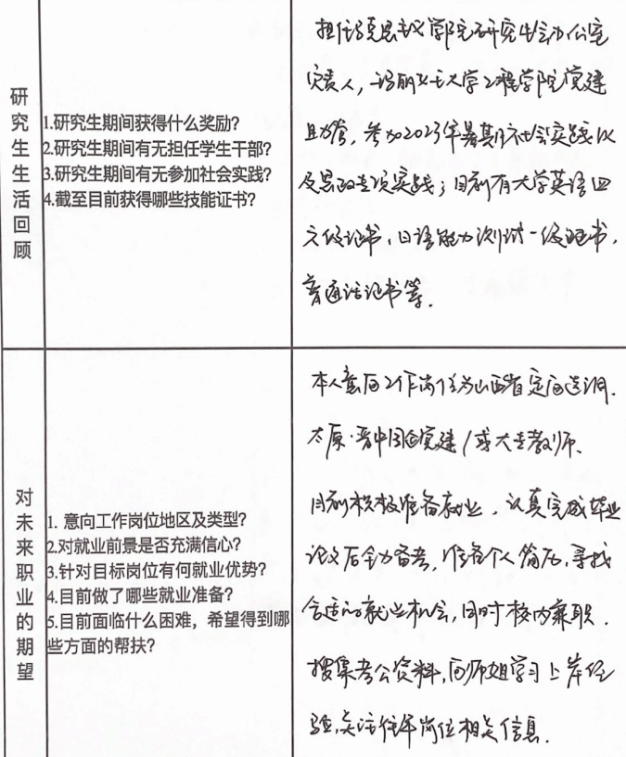 研究生生活回顾
1.研究生期间获得什么奖励?
2.研究生期间有无担任学生干部?
3.研究生期间有无参加社会实践?
4.截至目前获得哪些技能证书?
担任马克思主义学院研究生会办公室
负责人,大学工程学院党建
助管,参加2023年暑期社会实践以
及思政专项实践;目前有大学英语四
六级证书,日语能力测试一级证书,
普通话证书等.
对未来职业的期望
1. 意向工作岗位地区及类型?
2.对就业前景是否充满信心?
3.针对目标岗位有何就业优势?
4.目前做了哪些就业准备?
5.目前面临什么困难,希望得到哪
些方面的帮扶?
本人意向工作岗位为山西省定向选调.
太原·晋中国企党建/或大专教师.
目前积极准备就业,认真完成毕业
论文后全力备考,准备个人简历,寻找
合适的就业机会,同时校内兼职.
搜集考公资料,向师姐学习上岸经
验,关注往年岗位相关信息.